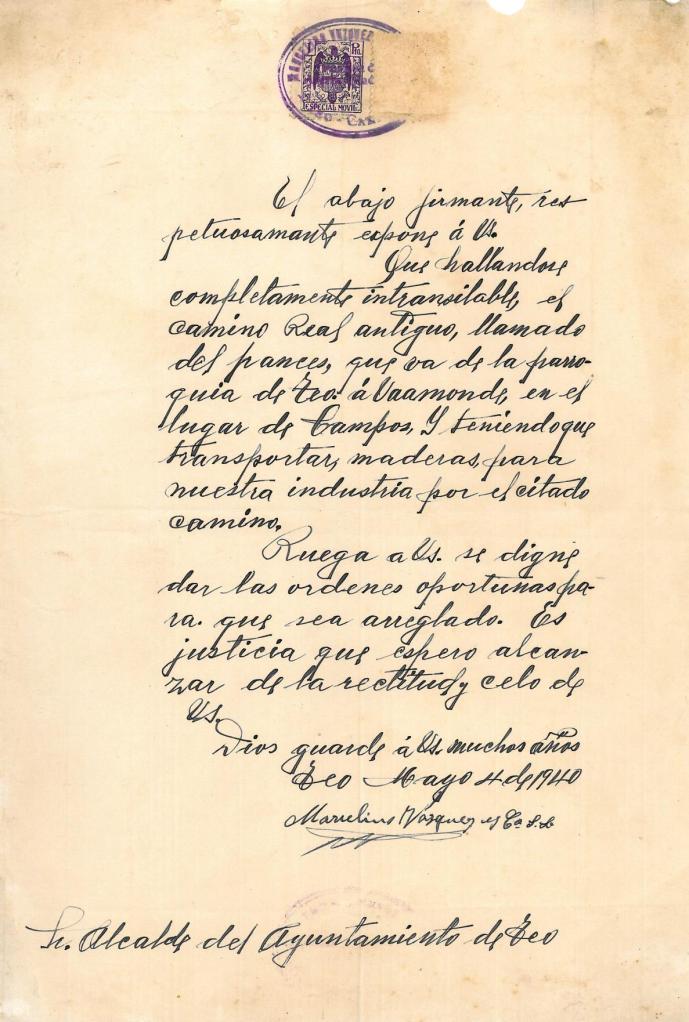 1 Pta
ESPECIAL MOVIL
El abajo firmante, res
petuosamante expone á Vs.
Que hallandose
completamente intransitable, el
camino Real antiguo, llamado
del pances, que va de la parro-
quia de Teo. á Vaamonde, en el
lugar de Campos, Y teniendo que
transportar, maderas, para
nuestra industria por el citado
camino.
Ruega a Vs. se digne
dar las ordenes oportunas pa-
ra. que sea arreglado. Es
justicia que espero alcan-
zar de la rectitud y celo de
Vs.
Dios guarde á Vs. muchos años
Teo Mayo 4 de 1940
Marcelino Vázquez y Cª S.L
Sr. Alcalde del Ayuntamiento de Teo